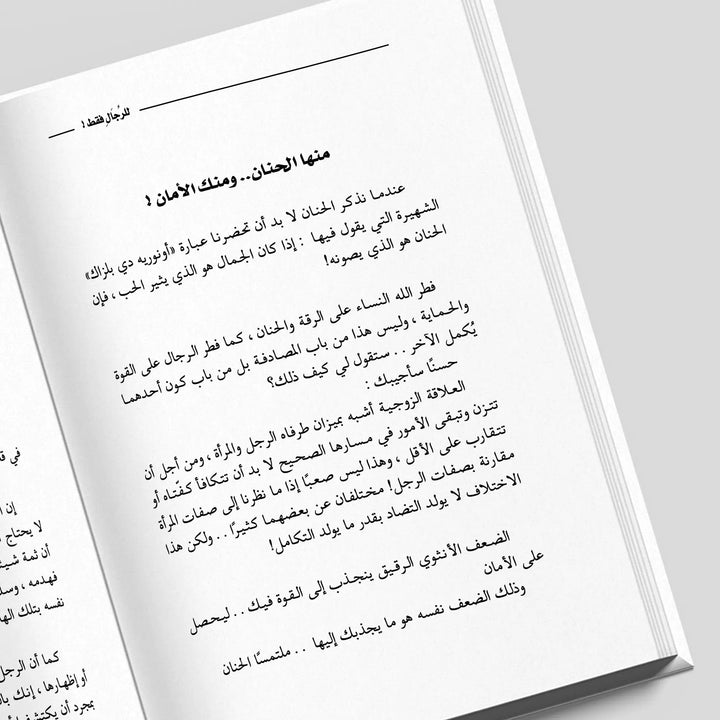 للرِّجَال فقط !
منها الحنان.. ومنك الأمان !
عندما نذكر الحنان لا بد أن تحضرنا عبارة «أونوريه دي بلزاك»
الشهيرة التي يقول فيها : إذا كان الجمال هو الذي يثير الحب ، فإن
الحنان هو الذي يصونه!
فطر الله النساء على الرقة والحنان ، كما فطر الرجال على القوة
والحماية ، وليس هذا من باب المصادفة بل من باب كون أحدهما
يُكمل الآخر . . ستقول لي كيف ذلك؟
حسنًا سأجيبك :
العلاقة الزوجية أشبه بميزان طرفاه الرجل والمرأة ، ومن أجل أن
تتزن وتبقى الأمور في مسارها الصحيح لا بد أن تتكافأ كفّتاه أو
تتقارب على الأقل ، وهذا ليس صعبًا إذا ما نظرنا إلى صفات المرأة
مقارنة بصفات الرجل! مختلفان عن بعضهما كثيرًا . . ولكن هذا
الاختلاف لا يولد التضاد بقدر ما يولد التكامل!
الضعف الأنثوي الرقيق ينجذب إلى القوة فيك . . ليحصل
على الأمان
وذلك الضعف نفسه هو ما يجذبك إليها . . ملتمسًا الحنان
إن ا
لا يحتاج
أن ثمة شيئ
فهدمه ، وسل
نفسه بتلك الها
كما أن الرجل
أو إظهارها ، إنك بال